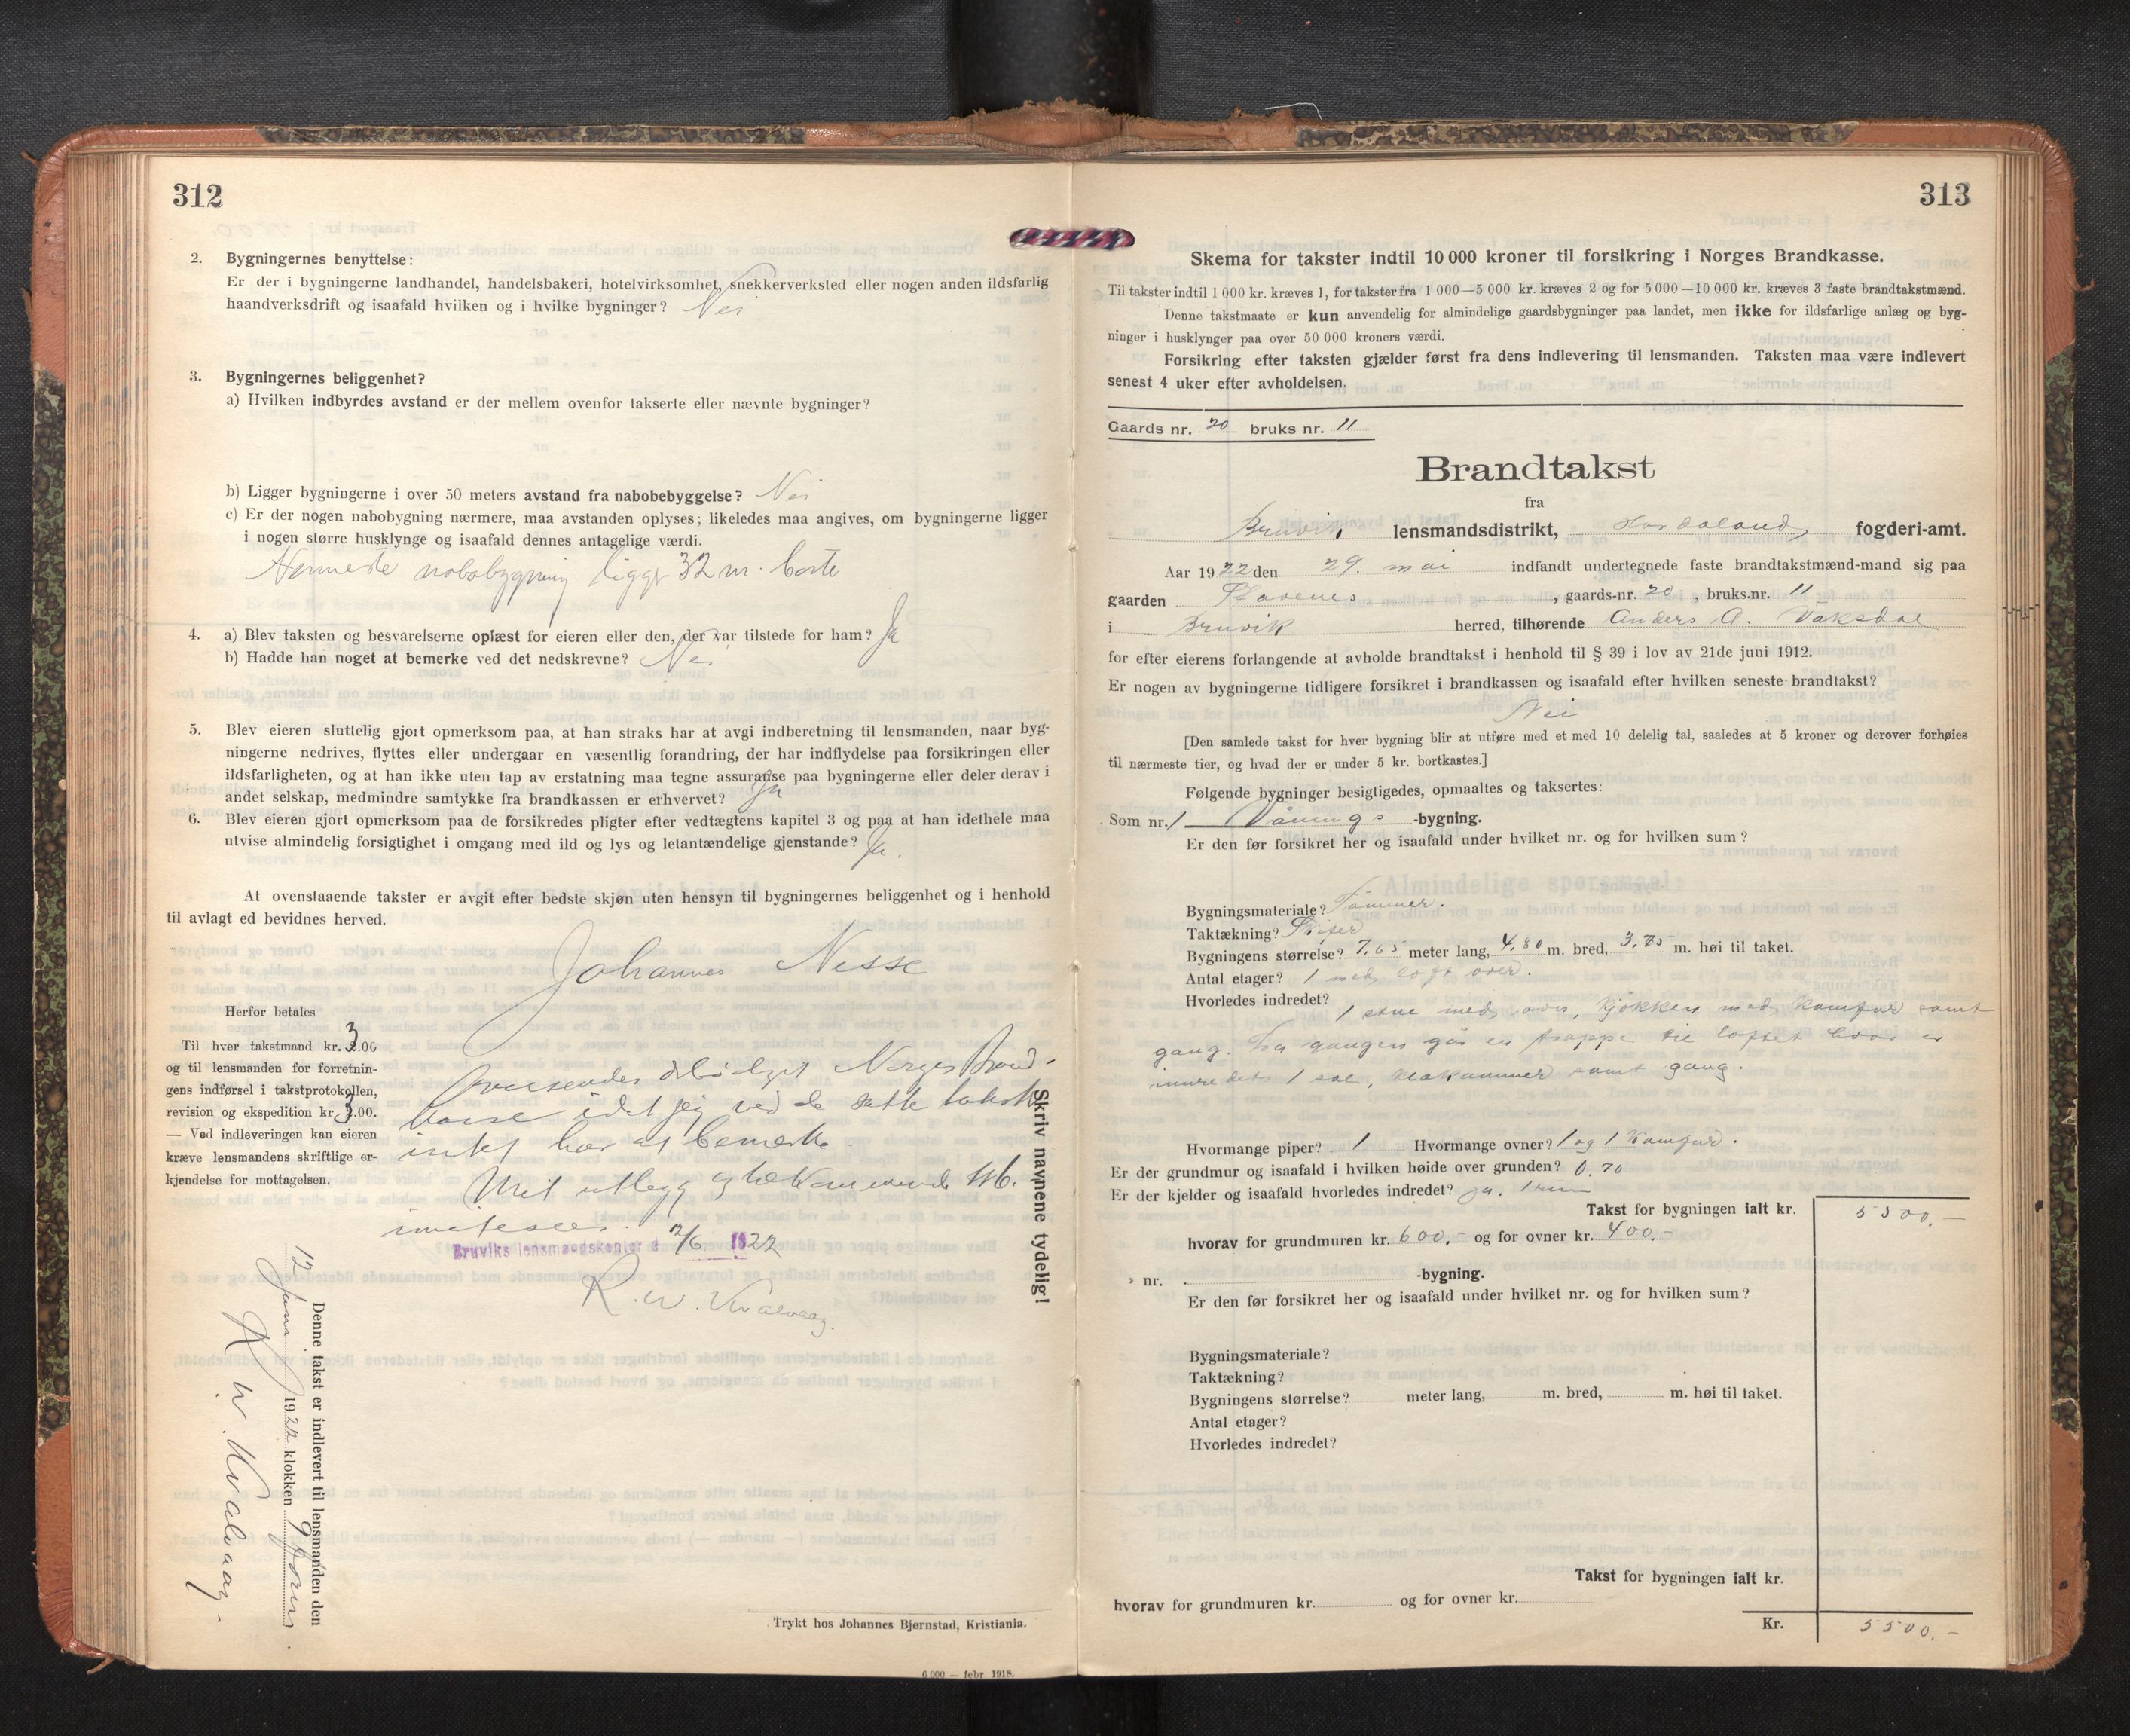 312
2. Bygningernes benyttelse:
Er der i bygningerne landhandel, handelsbakeri, hotelvirksomhet, snekkerverksted eller nogen anden ildsfarlig
haandverksdrift og isaafald hvilken og i hvilke bygninger? Nei
3. Bygningernes beliggenhet?
a) Hvilken indbyrdes avstand er der mellem ovenfor takserte eller nævnte bygninger?
b) Ligger bygningerne i over 50 meters avstand fra nabobebyggelse? Nei
c) Er der nogen nabobygning nærmere, maa avstanden oplyses; likeledes maa angives, om bygningerne ligger
i nogen større husklynge og isaafald dennes antagelige værdi.
Nermeste nabobygning ligger 32 m. borte
4. a) Blev taksten og besvarelserne oplæst for eieren eller den, der var tilstede for ham? Ja
b) Hadde han noget at bemerke ved det nedskrevne? Nei
5. Blev eieren sluttelig gjort opmerksom paa, at han straks har at avgi indberetning til lensmanden, naar byg-
ningerne nedrives, flyttes eller undergaar en væsentlig forandring, der har indflydelse paa forsikringen eller
ildsfarligheten, og at han ikke uten tap av erstatning maa tegne assuranse paa bygningerne eller deler derav i
andet selskap, medmindre samtykke fra brandkassen er erhvervet? Ja
6. Blev eieren gjort opmerksom paa de forsikredes pligter efter vedtægtens kapitel 3 og paa at han idethele maa
utvise almindelig forsigtighet i omgang med ild og lys og letantændelige gjenstande? Ja.
At ovenstaaende takster er avgit efter bedste skjøn uten hensyn til bygningernes beliggenhet og i henhold
til avlagt ed bevidnes herved.
Johannes Nesse
Herfor betales
Til hver takstmand kr. 3.00
og til lensmanden for forretnin-
gens indførsel i takstprotokollen,
revision og ekspedition kr. 3.00.
— Ved indleveringen kan eieren
kræve lensmandens skriftlige er-
kjendelse for mottagelsen.
Oversendes Norges Brand-
kasse idet jeg ved de satte takster
intet har at bemerke.
Mit utlegg
imøtesees.
Bruviks lensmandskontor d 12/6 1922
R. W. Kvalvaag.
Skriv navnene tydelig!
Denne takst er indlevert til lensmanden den
12 juni 1922 klokken 9 form
R. W. Kvalvaag.
Trykt hos Johannes Bjørnstad, Kristiania.
6 000 — febr. 1918.
313
Skema for takster indtil 10 000 kroner til forsikring i Norges Brandkasse.
Til takster indtil 1 000 kr. kræves 1, for takster fra 1 000—5 000 kr. kræves 2 og for 5 000—10 000 kr. kræves 3 faste brandtakstmænd.
Denne takstmaate er kun anvendelig for almindelige gaardsbygninger paa landet, men ikke for ildsfarlige anlæg og byg-
ninger i husklynger paa over 50 000 kroners værdi.
Forsikring efter taksten gjælder først fra dens indlevering til lensmanden. Taksten maa være indlevert
senest 4 uker efter avholdelsen.
Gaards nr. 20 bruks nr. 11
Brandtakst
fra
Bruvik lensmandsdistrikt, Hordalands fogderi-amt.
Aar 1922 den 29. mai indfandt undertegnede faste brandtakstmænd-mand sig paa
gaarden Stavenes, gaards-nr. 20, bruks.nr. 11
i Bruvik herred, tilhørende Anders A. Vaksdal
for efter eierens forlangende at avholde brandtakst i henhold til § 39 i lov av 21de juni 1912.
Er nogen av bygningerne tidligere forsikret i brandkassen og isaafald efter hvilken seneste brandtakst?
Nei
[Den samlede takst for hver bygning blir at utføre med et med 10 delelig tal, saaledes at 5 kroner og derover forhøies
til nærmeste tier, og hvad der er under 5 kr. bortkastes.]
Følgende bygninger besigtigedes, opmaaltes og taksertes:
Som nr. 1 Vånings -bygning.
Er den før forsikret her og isaafald under hvilket nr. og for hvilken sum?
Bygningsmateriale? Tømmer.
Taktækning? Skifer
Bygningens størrelse? 7,65 meter lang, 4,80 m. bred, 3,75 m. høi til taket.
Antal etager? 1 med loft over.
Hvorledes indredet? 1 stue med ovn, kjøkken med komfur samt
gang. Fra gangen går en trappe til loftet hvor er
innredet 1 sal, klækammer samt gang.
Hvormange piper? 1 Hvormange ovner? 1 og 1 komfur.
Er der grundmur og isaafald i hvilken høide over grunden? 0.70
Er der kjelder og isaafald hvorledes indredet? ja, 1 rum
Takst for bygningen ialt kr. 5500.—
hvorav for grundmuren kr. 600,- og for ovner kr. 400.-
» nr. -bygning.
Er den før forsikret her og isaafald under hvilket nr. og for hvilken sum?
Bygningsmateriale?
Taktækning?
Bygningens størrelse? meter lang, m. bred, m. høi til taket.
Antal etager?
Hvorledes indredet?
Takst for bygningen ialt kr.
hvorav for grundmuren kr. og for ovner kr.
Kr. 5500.—